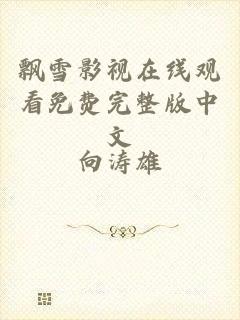 飘雪影视在线观
看免费完整版中
文
向涛雄